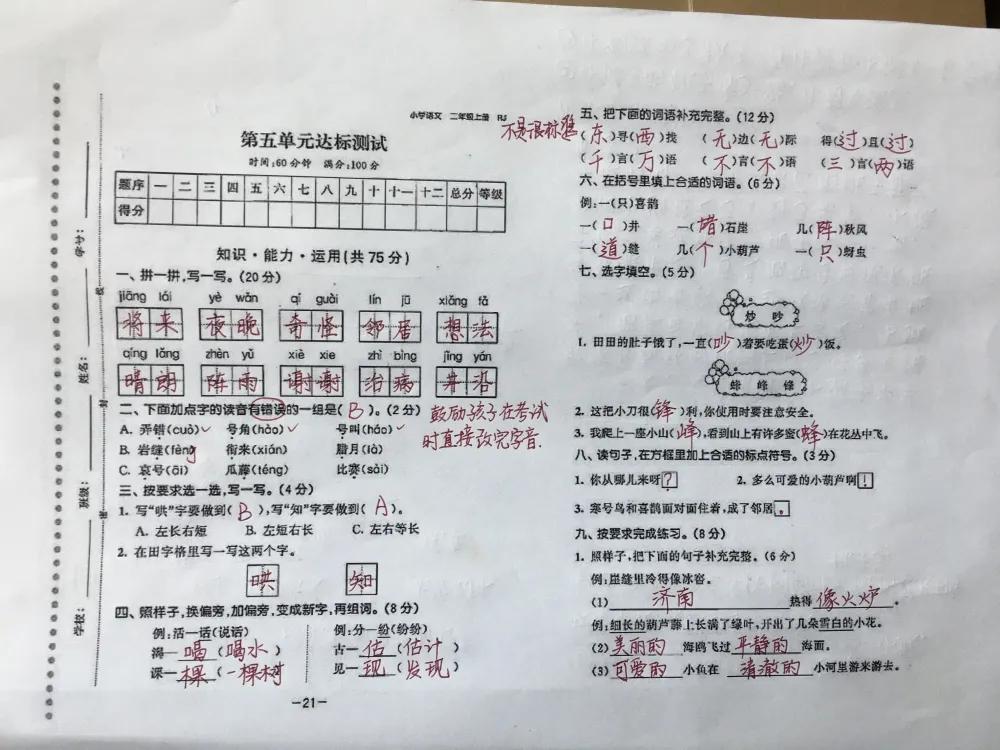 学号：
姓名：
班级：
学校：
线
封
密
小学语文 二年级上册 RJ
第五单元达标测试
时间:60分钟 满分:100分
题序 一 二 三 四 五 六 七 八 九 十 十一 十二 总分 等级
得分
知识·能力·运用(共75分)
一、拼一拼,写一写。(20分)
jiāng lái yè wǎn qí guài lín jū xiǎng fǎ
将来 夜晚 奇怪 邻居 想法
qíng lǎng zhèn yǔ xiè xie zhì bìng jǐng yán
晴朗 阵雨 谢谢 治病 井沿
二、下面加点字的读音有错误的一组是( B )。(2分)
鼓励孩子在考试
时直接改完字音.
A. 弄错(cuò)✓ 号角(hào)✓ 号叫(háo)✓
B. 岩缝(fèng) 衔来(xián)
C. 哀号(āi) 瓜藤(téng) 比赛(sài)
腊月(là)
三、按要求选一选,写一写。(4分)
1. 写“哄”字要做到( B ),写“知”字要做到( A )。
A. 左长右短 B. 左短右长 C. 左右等长
2. 在田字格里写一写这两个字。
哄 知
四、照样子,换偏旁,加偏旁,变成新字,再组词。(8分)
例:活—话(说话) 例:分—纷(纷纷)
渴—喝(喝水) 古—估(估计)
课—棵(一棵树) 见—现(发现)
—21—
五、把下面的词语补充完整。(12分)
(东)寻(西)找 (无)边(无)际 得(过)且(过)
(千)言(万)语 (不)言(不)语 (三)言(两)语
六、在括号里填上合适的词语。(6分)
例:一(只)喜鹊
一(口)井 一(堵)石崖 几(阵)秋风
一(道)缝 几(个)小葫芦 一(只)蚜虫
七、选字填空。(5分)
炒 吵
1. 田田的肚子饿了,一直(吵)着要吃蛋(炒)饭。
蜂 峰 锋
2. 这把小刀很(锋)利,你使用时要注意安全。
3. 我爬上一座小山(峰),看到山上有许多蜜(蜂)在花丛中飞。
八、读句子,在方框里加上合适的标点符号。(3分)
1. 你从哪儿来呀? 2. 多么可爱的小葫芦啊!
3. 寒号鸟和喜鹊面对面住着,成了邻居。
九、按要求完成练习。(8分)
1. 照样子,把下面的句子补充完整。(6分)
例:崖缝里冷得像冰窖。
(1) 济南 热得 像火炉。
例:细长的葫芦藤上长满了绿叶,开出了几朵雪白的小花。
(2) 美丽的 海鸥飞过 平静的 海面。
(3) 可爱的 小鱼在 清澈的 小河里游来游去。